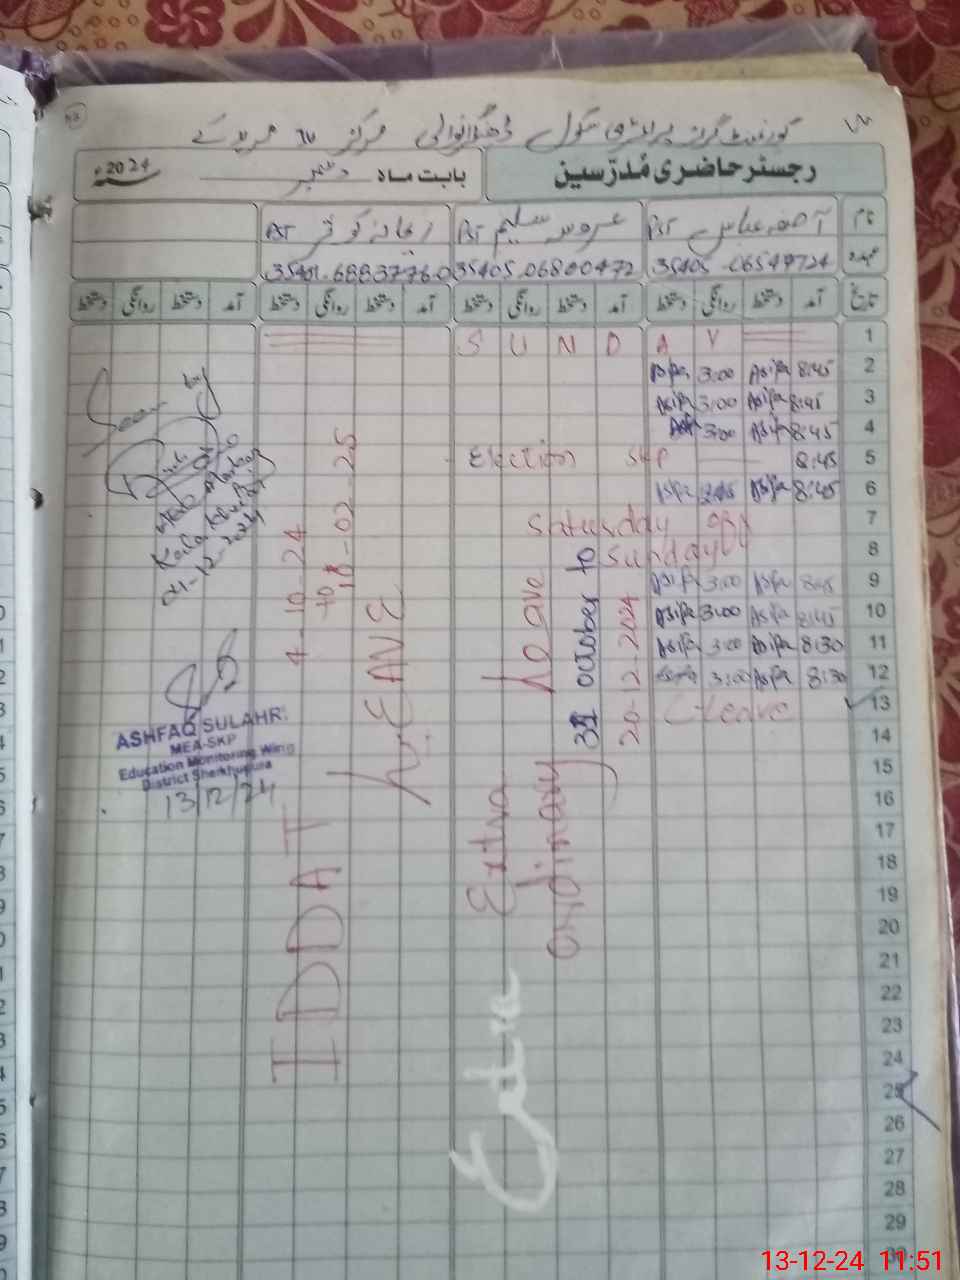 گورنمنٹ گرلز پرائمری سکول مرکز مریدکے
رجسٹر حاضری مُدرّسین
بابت ماہ دسمبر 2024ء
نام آصفہ عباس PST عروسہ سلیم PST ریحانہ کوثر PST
عہدہ
تاریخ آمد دستخط روانگی دستخط آمد دستخط روانگی دستخط آمد دستخط روانگی دستخط آمد دستخط روانگی دستخط
1 S U N D A Y
2 8:45 Asifa 3:00 Asifa
3 8:45 Asifa 3:00 Asifa
4 8:45 Asifa 3:00
5 8:45 Election SKP
6 8:45 Asifa
7 Saturday
8 Sunday
9 Asifa 3:00 Asifa
10 8:45 Asifa 3:00 Asifa
11 8:30 Asifa 3:00 Asifa
12 8:30 Asifa 3:00
13 C-leave
14
15
16
17
18
19
20
21
22
23
24
25
26
27
28
29
Extra ordinary Leave
31 october to
20-12-2024
Extra
IDDAT LEAVE
4-10-24
to
-02-25
Seen by
04-12-2024
ASHFAQ SULAHRI
MEA-SKP
Education Monitoring Wing
District Sheikhupura
13/12/24
13-12-24 11:51